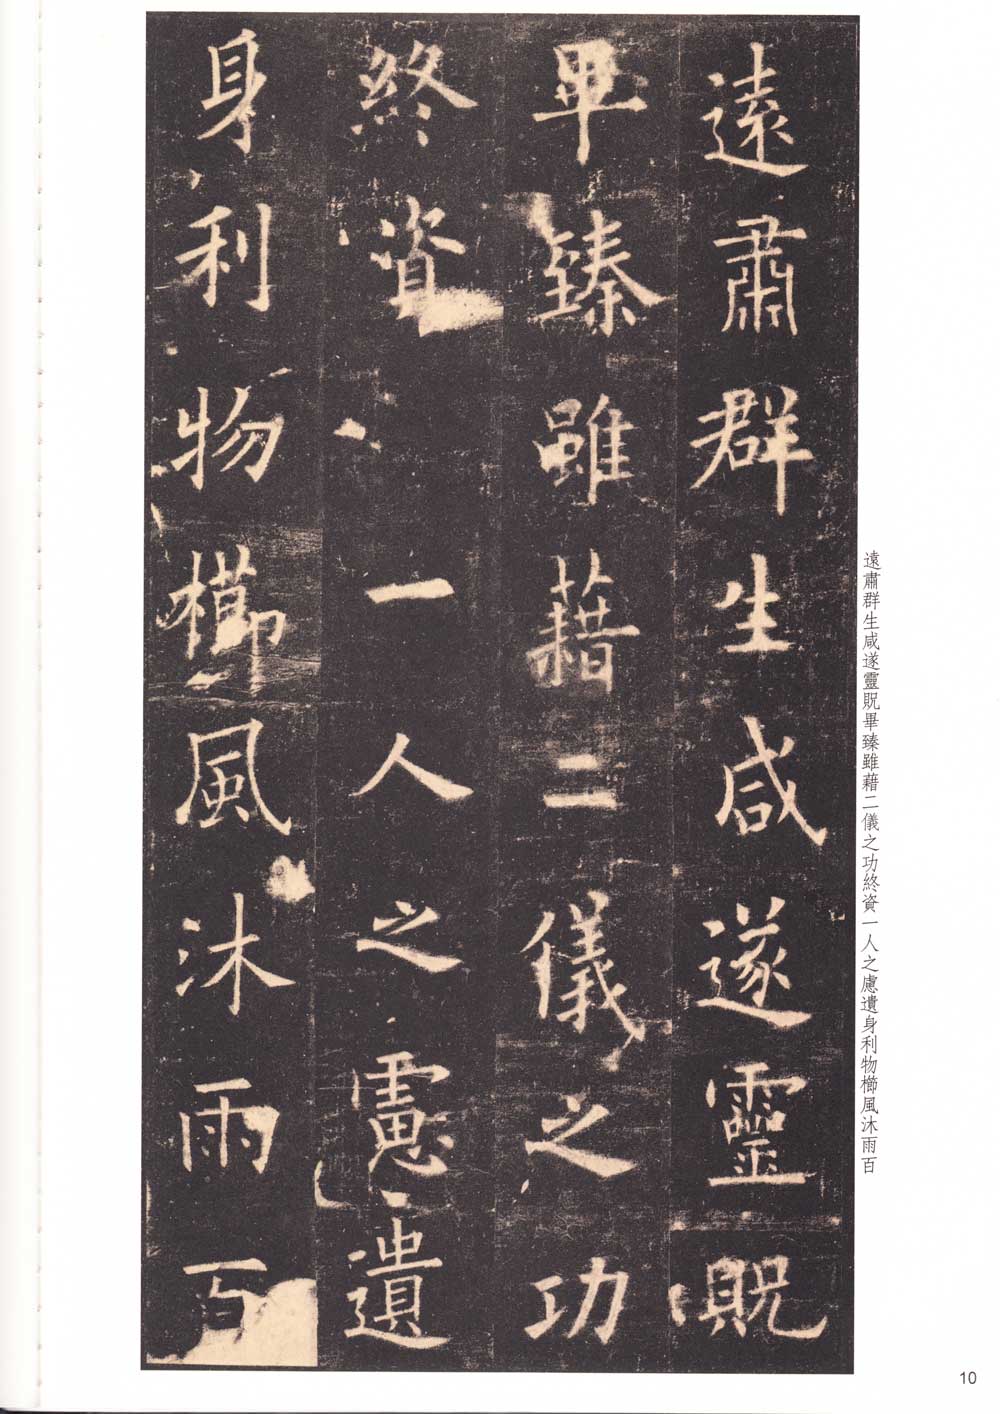 遠肅群生咸遂靈貺
畢臻雖藉二儀之功
終資一人之慮遺
身利物櫛風沐雨百
遠肅群生咸遂靈貺畢臻雖藉二儀之功終資一人之慮遺身利物櫛風沐雨百
10